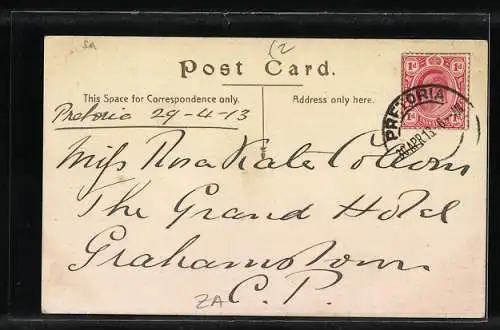 SA
(2
Post Card.
This Space for Correspondence only.
Address only here.
1d 1d
PRETORIA
APR 13
Pretoria 29-4-13
Miss Rosa Kate
The Grand Hotel
Grahamstown
ZA C.P.